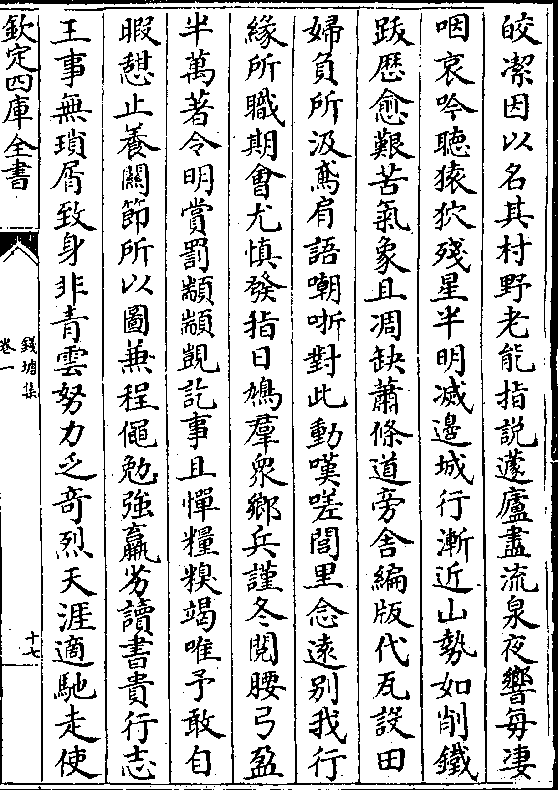 皎潔因以名其村野老能指説蘧廬盡流泉夜響每淒
咽哀吟聽猿狖殘星半明滅邊城行漸近山勢如削鐵
跋歴愈艱苦氣象且凋缺蕭條道旁舍編版代瓦設田
婦負所汲鳶肩語嘲哳對此動嘆嗟閭里念遠别我行
緣所職期會尤慎發指日鳩羣衆鄉兵謹冬閱腰弓盈
半萬著令明賞罰顓顓覬訖事且憚糧糗竭唯予敢自
暇愆止養關節所以圖兼程僶勉強羸劣讀書貴行志
王事無瑣屑致身非青雲努力乏奇烈天涯適馳走使
欽定四庫全書
錢塘集
卷一
十七